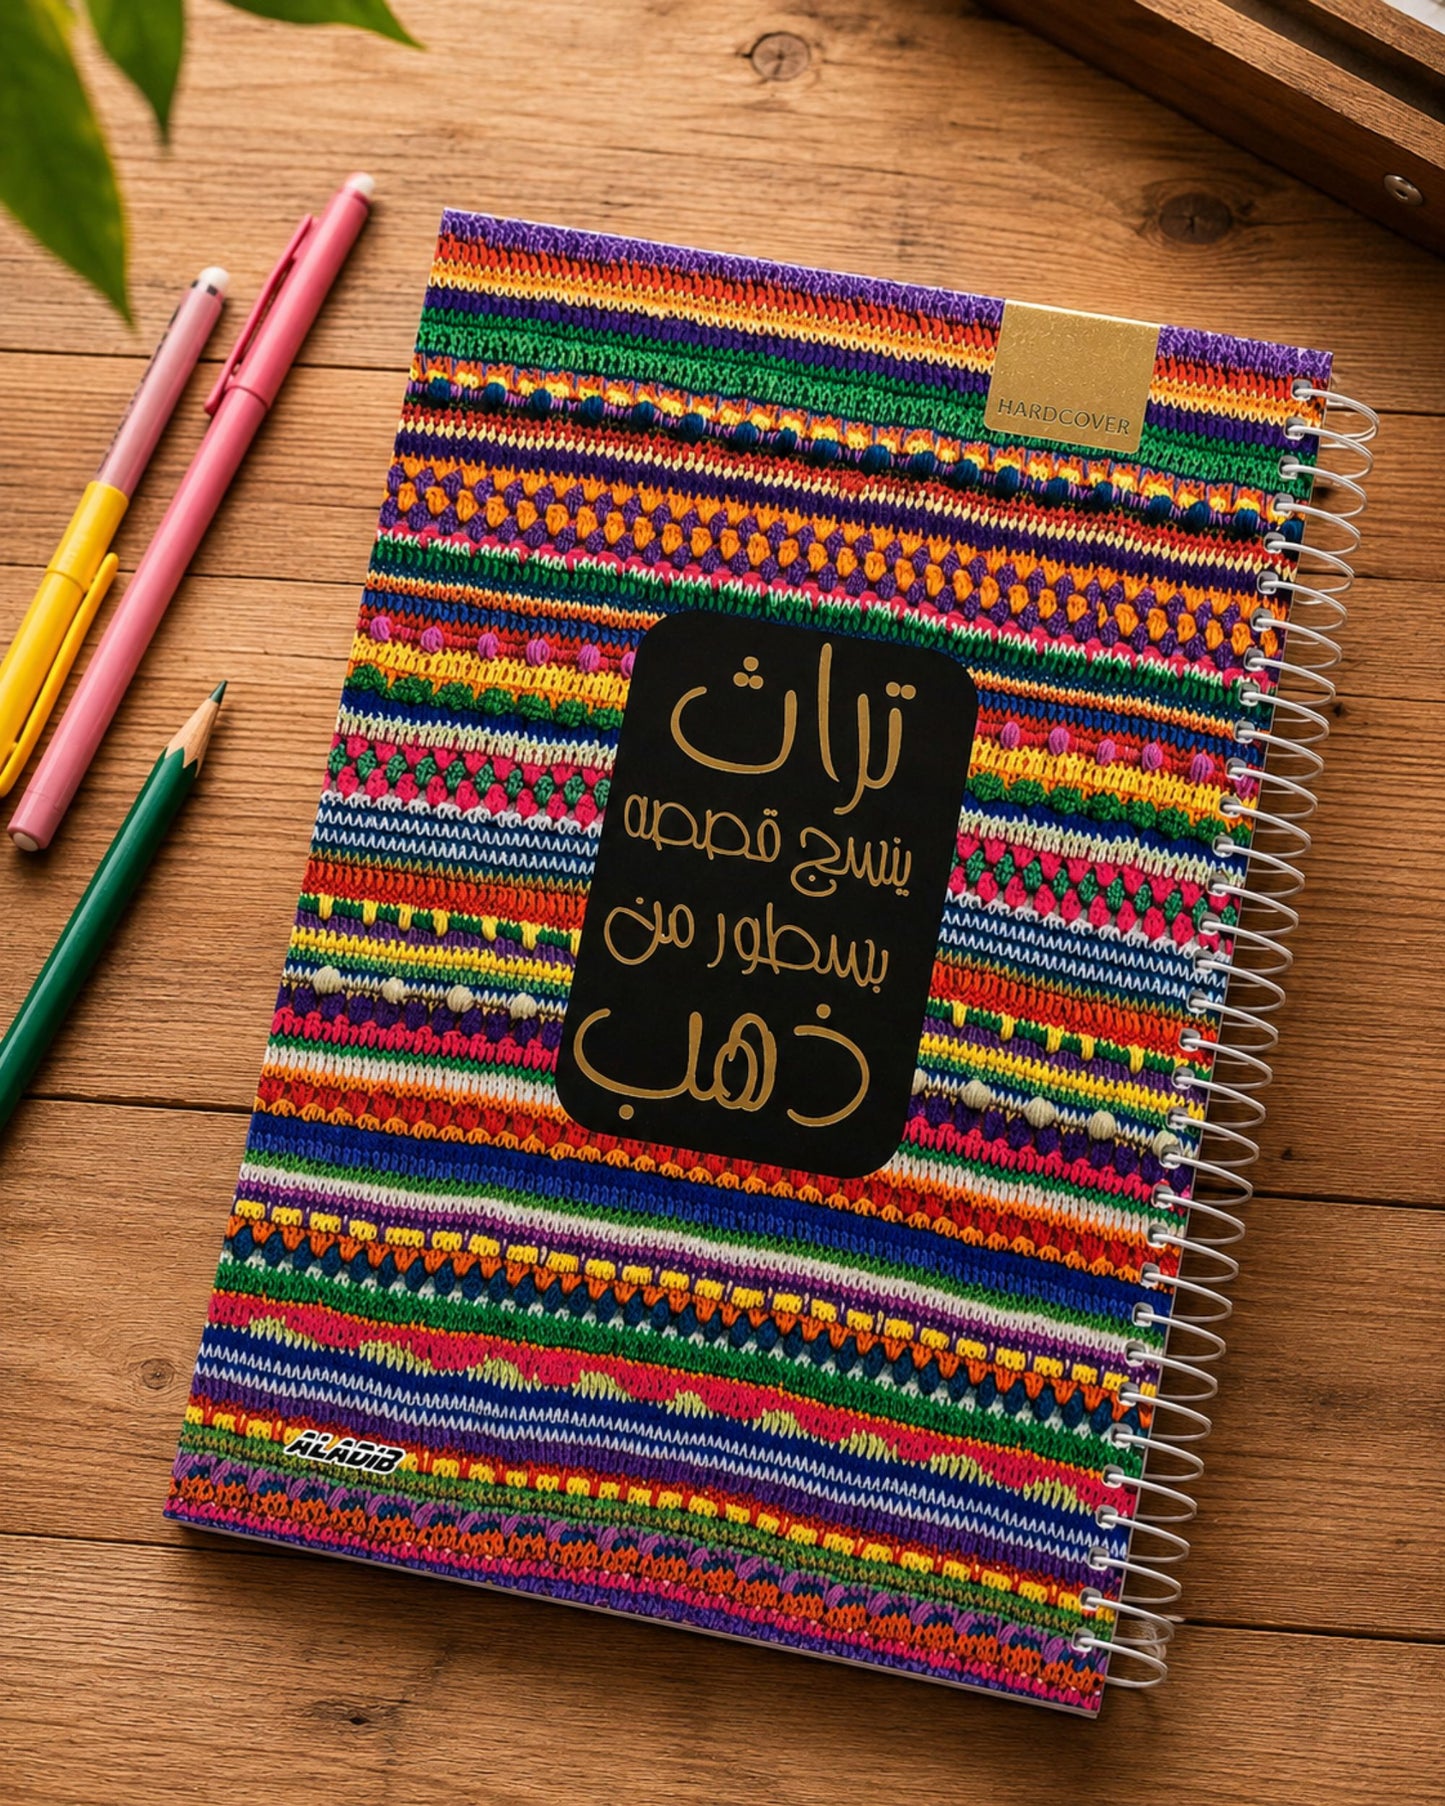 HARDCOVER
تراث
ينسج قصصه
بسطور من
ذهب
ALADIB